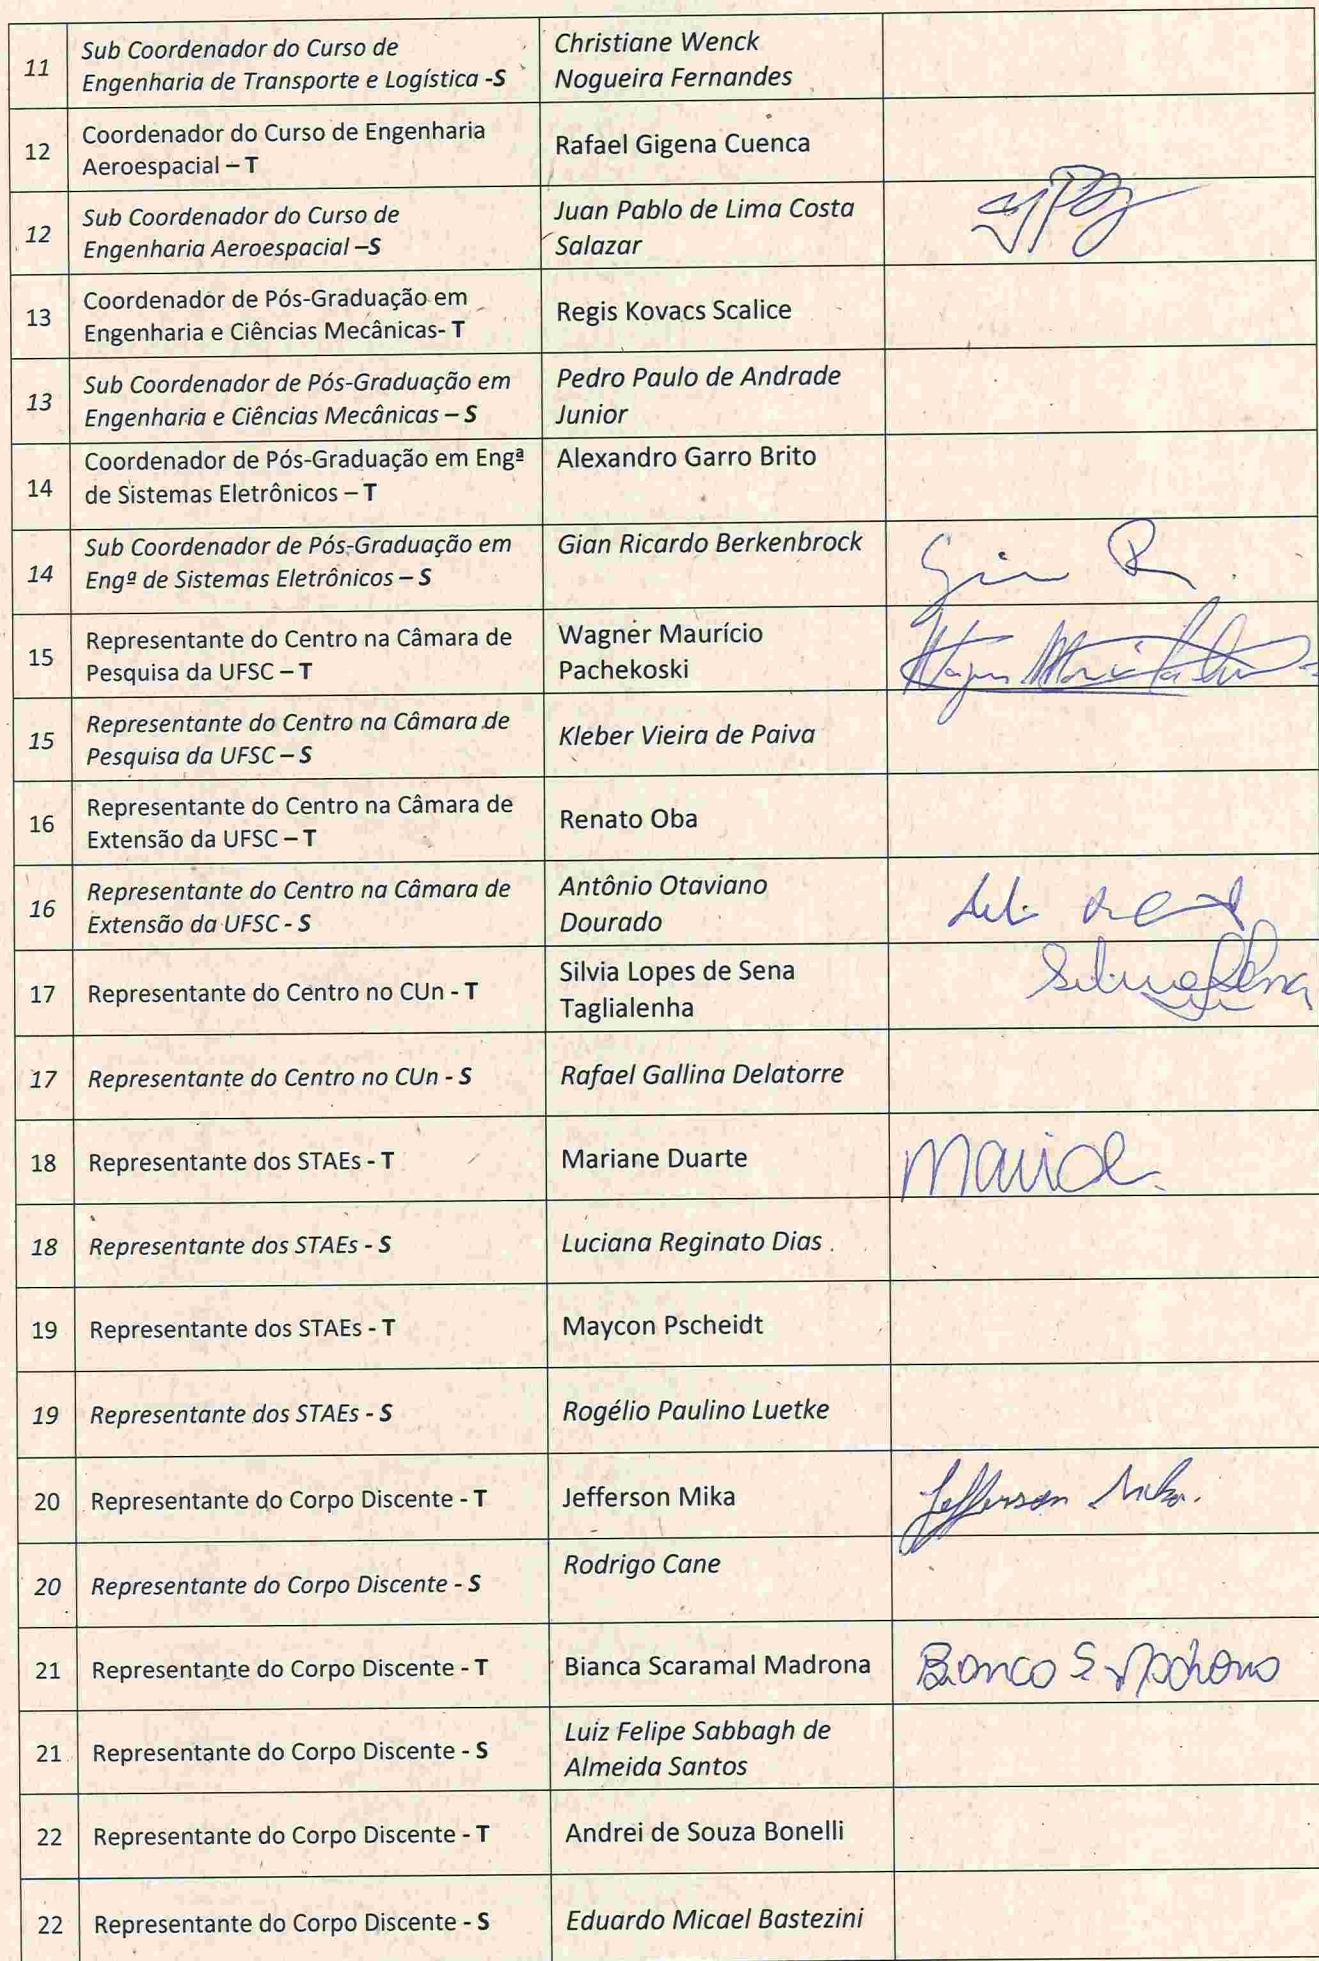 11
Sub Coordenador do Curso de
Engenharia de Transporte e Logística -S
Christiane Wenck
Nogueira Fernandes
12
Coordenador do Curso de Engenharia
Aeroespacial – T
Rafael Gigena Cuenca
12
Sub Coordenador do Curso de
Engenharia Aeroespacial –S
Juan Pablo de Lima Costa
Salazar
13
Coordenador de Pós-Graduação em
Engenharia e Ciências Mecânicas- T
Regis Kovacs Scalice
13
Sub Coordenador de Pós-Graduação em
Engenharia e Ciências Mecânicas – S
Pedro Paulo de Andrade
Junior
14
Coordenador de Pós-Graduação em Engª
de Sistemas Eletrônicos – T
Alexandro Garro Brito
14
Sub Coordenador de Pós-Graduação em
Engª de Sistemas Eletrônicos – S
Gian Ricardo Berkenbrock
Gian R
15
Representante do Centro na Câmara de
Pesquisa da UFSC – T
Wagner Maurício
Pachekoski
15
Representante do Centro na Câmara de
Pesquisa da UFSC – S
Kleber Vieira de Paiva
16
Representante do Centro na Câmara de
Extensão da UFSC – T
Renato Oba
16
Representante do Centro na Câmara de
Extensão da UFSC - S
Antônio Otaviano
Dourado
17
Representante do Centro no CUn - T
Silvia Lopes de Sena
Taglialenha
17
Representante do Centro no CUn - S
Rafael Gallina Delatorre
18
Representante dos STAEs - T
Mariane Duarte
18
Representante dos STAEs - S
Luciana Reginato Dias
19
Representante dos STAEs - T
Maycon Pscheidt
19
Representante dos STAEs - S
Rogélio Paulino Luetke
20
Representante do Corpo Discente - T
Jefferson Mika
Jefferson Mika.
20
Representante do Corpo Discente - S
Rodrigo Cane
21
Representante do Corpo Discente - T
Bianca Scaramal Madrona
Bianca S Madrona
21
Representante do Corpo Discente - S
Luiz Felipe Sabbagh de
Almeida Santos
22
Representante do Corpo Discente - T
Andrei de Souza Bonelli
22
Representante do Corpo Discente - S
Eduardo Micael Bastezini